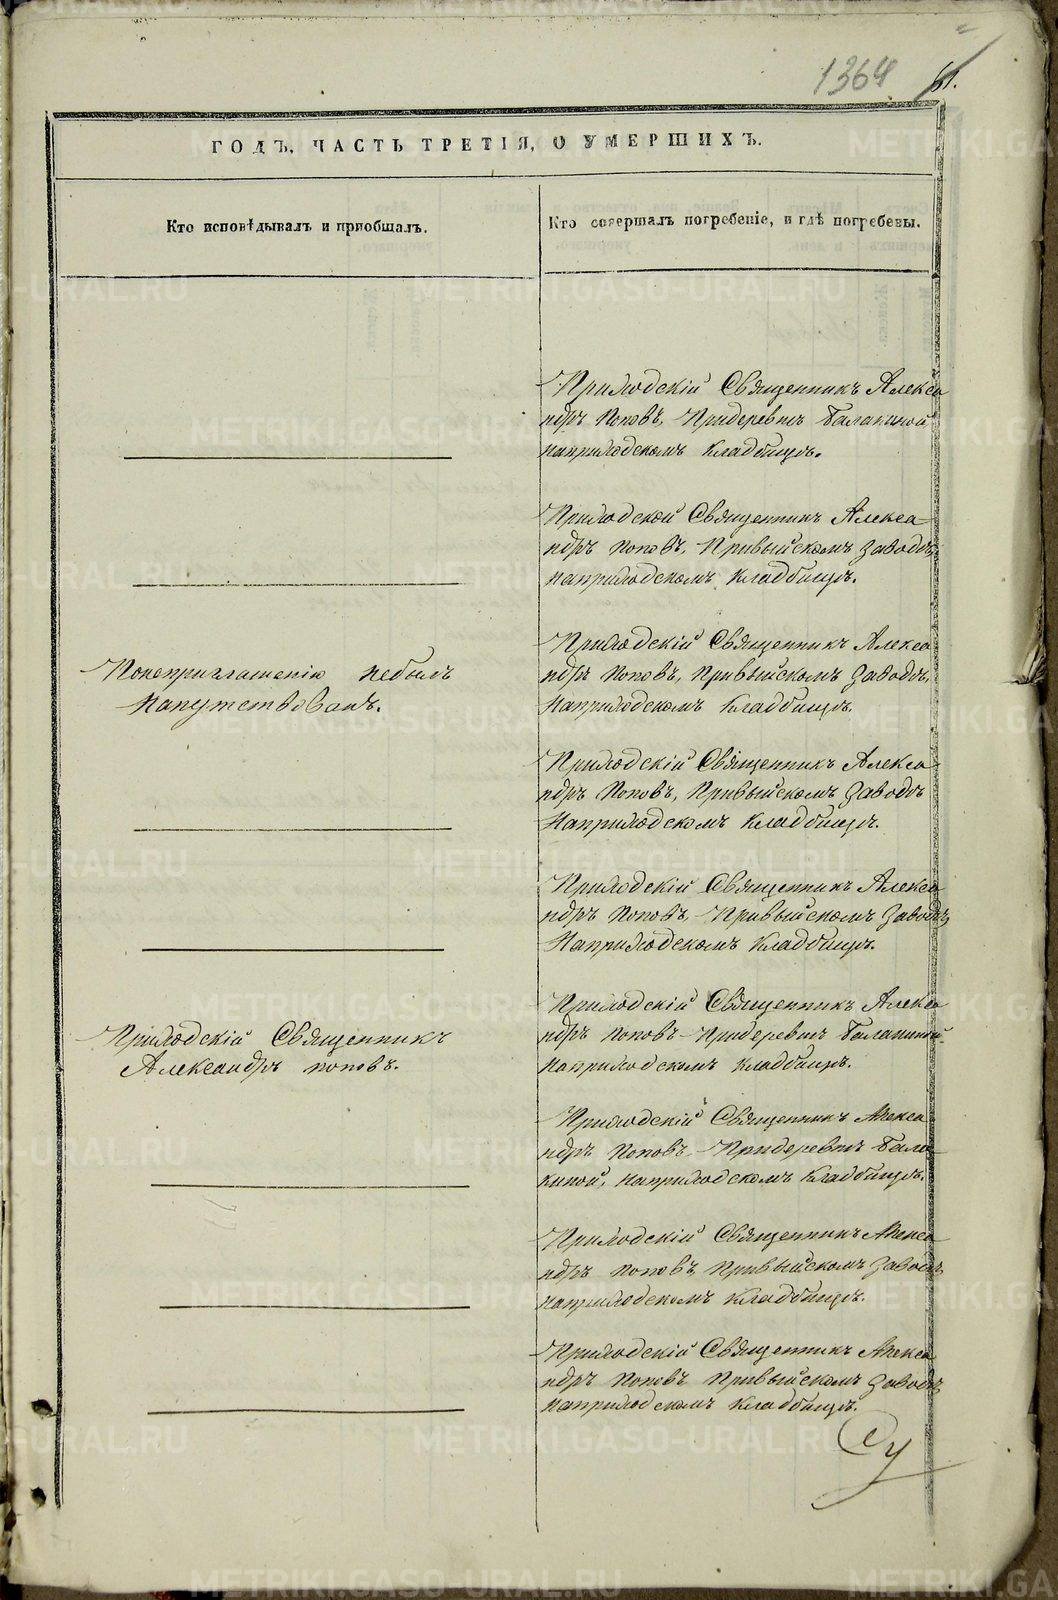 1364 61.
ГОДЪ, ЧАСТЬ ТРЕТІЯ, О УМЕРШИХЪ.
Кто исповѣдывалъ и пріобщалъ.
Кто совершалъ погребеніе, и гдѣ погребены.
Приходскій Священникъ Алекса
ндръ Поповъ, Придеревнѣ Балакиной
наприходскомъ кладбищѣ.
Приходскій Священникъ Алекса
ндръ Поповъ, Привыйскомъ заводѣ,
наприходскомъ кладбищѣ.
Понеприглашенію небылъ
напутствованъ.
Приходскій Священникъ Алекса
ндръ Поповъ, Привыйскомъ заводѣ,
Наприходскомъ кладбищѣ.
Приходскій Священникъ Алекса
ндръ Поповъ, Привыйскомъ заводѣ
Наприходскомъ кладбищѣ.
Приходскій Священникъ Алекса
ндръ Поповъ, Привыйскомъ заводѣ,
Наприходскомъ кладбищѣ.
Приходскій Священникъ
Александръ поповъ.
Приходскій Священникъ Алекса
ндръ Поповъ Придеревнѣ Балакиной
наприходскомъ кладбищѣ.
Приходскій Священникъ Алекса
ндръ Поповъ, Придеревнѣ Бала
киной, наприходскомъ кладбищѣ.
Приходскій Священникъ Алекса
ндръ Поповъ, Привыйскомъ заводѣ,
наприходскомъ кладбищѣ.
Приходскій Священникъ Алекса
ндръ Поповъ Привыйскомъ заводѣ,
наприходскомъ кладбищѣ.
METRIKI.GASO-URAL.RU